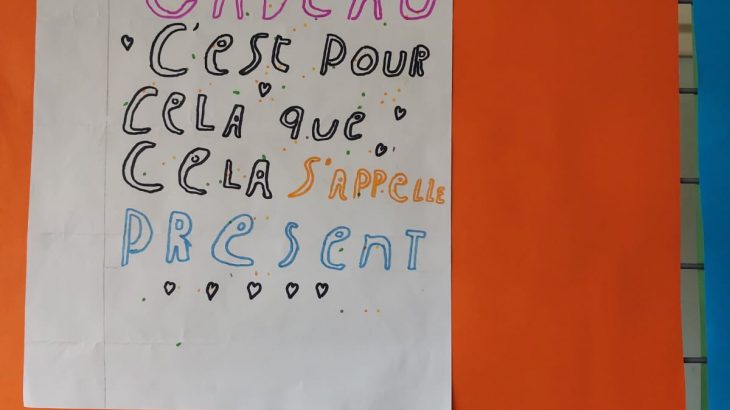 CADEAU
C'est POUR
CeLA que
CeLA S'APPELLE
PResenT